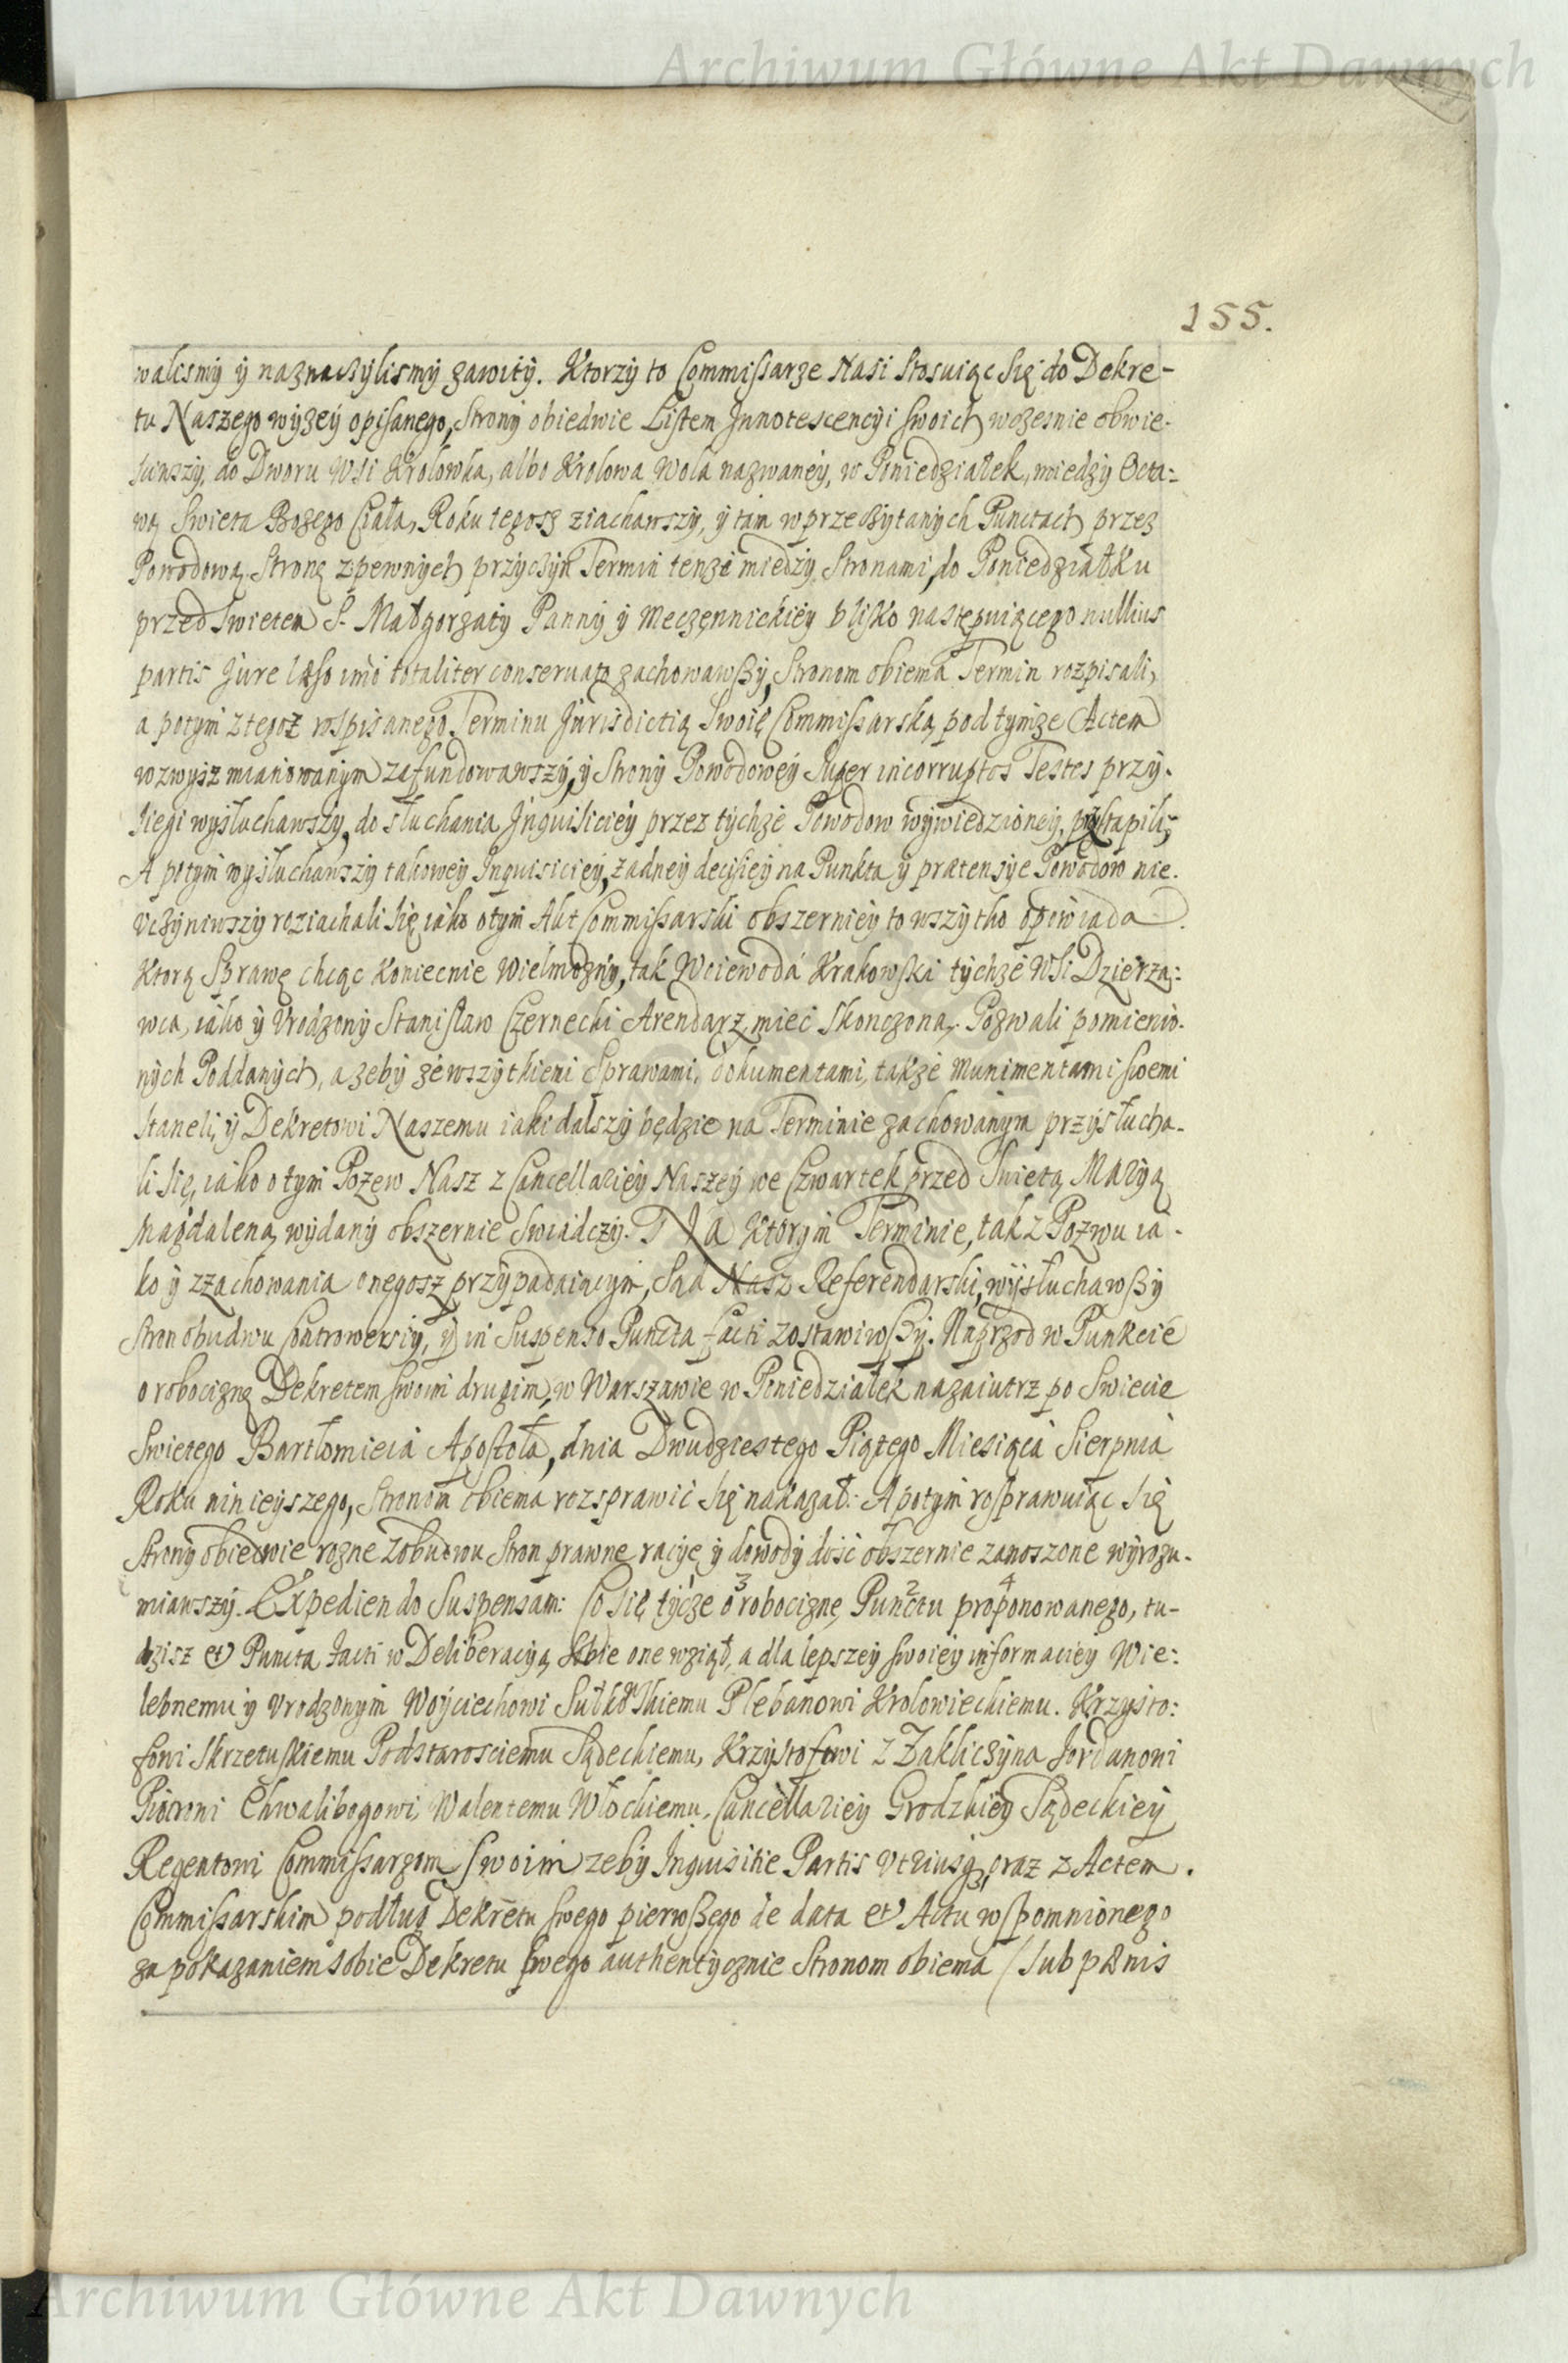 Archiwum Główne Akt Dawnych
155.
walismÿ ÿ naznaczÿlismÿ zawitÿ. Ktorzÿ to Commissarze Nasi Stosuiąc Się do Dekre-
tu Naszego wÿzeÿ opisanego, Stronÿ obiedwie Listem Innotescencÿi swoich wczesnie obwie-
sciwszÿ, do Dworu Wsi Krolowka, albo Krolowa Wola nazwaneÿ, w Poniedziałek, miedzÿ Octa:
wą Swieta Bozego Ciała, Roku tegosz ziachawszÿ, ÿ tam w przeczÿtanÿch Punctach przez
Powodową Stronę z pewnÿch przÿczÿn Termin tenze miedzÿ Stronami, do Poniedziałku
przed Swietem S. Małgorzatÿ Pannÿ ÿ Meczęnnickieÿ blisko nastepuiącego nullius
partis Jure læso imò totaliter conseruato zachowawszÿ, Stronom obiema Termin rozpisali,
a potÿm z tegoż rospisanego Terminu Jurisdictią Swoię Commissarską pod tÿmze Actem
wzwÿsz mianowanÿm zafundowawszÿ, ÿ Stronÿ Powodoweÿ Super incorruptos Testes przÿ-
siegi wÿsłuchawszÿ, do słuchania Inquisicieÿ przez tÿchże Powodow wÿwiedzioneÿ, przÿstąpili;
A potÿm wÿsłuchawszÿ takoweÿ Inquisicieÿ, zadneÿ decisieÿ na Punkta ÿ prætensÿe Powodow nie.
vczÿniwszÿ roziachali się, iako o tÿm Akt Commissarski obszernieÿ to wszÿtko opowiada.
Ktorą Sprawę chcąc koniecnie Wielmoznÿ, tak Woiewoda Krakowski tÿchże Wsi Dzierza:
wca, iako ÿ Vrodzonÿ Stanisław Czernecki Arendarz, miec skonczoną. Pozwali pomienio-
nÿch Poddanÿch, azebÿ ze wszÿtkiemi Sprawami, dokumentami, także Munimentami swemi
staneli, ÿ Dekretowi Naszemu iaki dalszÿ będzie na Terminie zachowanÿm przÿsłucha-
li się, iako o tÿm Pozew Nasz z Cancellarieÿ Naszeÿ we Czwartek przed Swietą Marÿą
Magdaleną wÿdanÿ obszernie swiadczÿ. Na ktorÿm Terminie, tak z Pozwu ia-
ko ÿ z zachowania onegosz przÿpadaiącÿm, Sąd Nasz Referendarski, wÿsłuchawszÿ
Stron obudwu Controwersiÿ, ÿ in Suspenso Puncta facti zostawiwszÿ. Naprzod w Punkcie
o robociznę Dekretem swoim drugim, w Warszawie w Poniedziałek nazaiutrz po Swiecie
Swietego Bartłomieia Apostoła, dnia Dwudziestego Piątego Miesiąca Sierpnia
Roku ninieÿszego, Stronom obiema rozsprawić się nakazał. A potÿm rosprawuiąc się
Stronÿ obiedwie rozne z obudwu Stron prawne racÿe, ÿ dowodÿ dość obszernie zanoszone wÿrozu-
miawszÿ. Expediendo Suspensam: Co się tÿcze o 3 robociznę 2 Punctu 4 proponowanego, tu-
dzisz et Puncta facti w Deliberacÿą sobie one wziął, a dla lepszeÿ swoieÿ informacieÿ Wie:
lebnemu ÿ Vrodzonÿm Woÿciechowi Sułkowskiemu Plebanowi Krolowieckiemu. Krzÿszto:
fowi Skrzetuskiemu Podstarosciemu Sądeckiemu, Krzÿsztofowi z Zakliczÿna Jordanowi
Piotrowi Chwalibogowi, Walentemu Włockiemu, Cancellarieÿ Grodzkieÿ Sądeckieÿ
Regentowi Commissarzom swoim zebÿ Inquisitie Partis Vtriusq, oraz z Actem
Commissarskim podług Dekretu swego pierwszego de data et Actu wspomnionego
za pokazaniem sobie Dekretu swego authentÿcznie Stronom obiema (sub pænis
Archiwum Główne Akt Dawnych